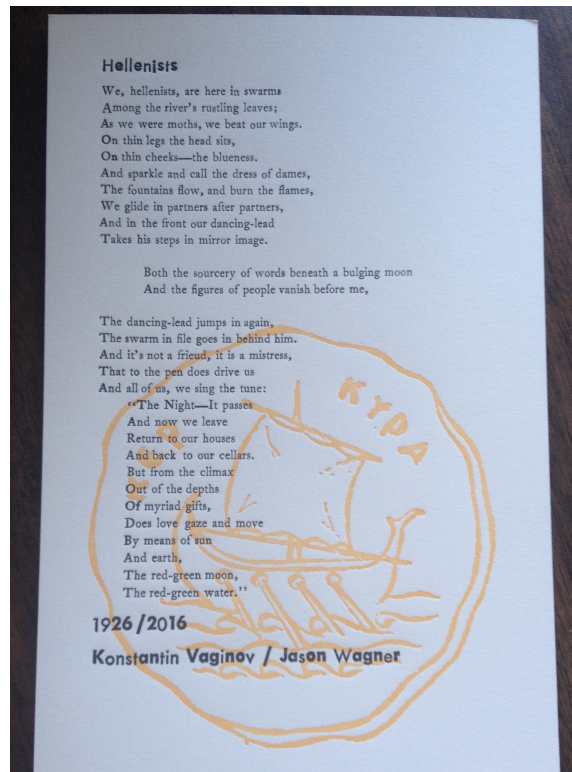 Hellenists
We, hellenists, are here in swarms
Among the river's rustling leaves;
As we were moths, we beat our wings.
On thin legs the head sits,
On thin cheeks—the blueness.
And sparkle and call the dress of dames,
The fountains flow, and burn the flames,
We glide in partners after partners,
And in the front our dancing-lead
Takes his steps in mirror image.
Both the sourcery of words beneath a bulging moon
And the figures of people vanish before me,
The dancing-lead jumps in again,
The swarm in file goes in behind him.
And it's not a frieud, it is a mistress,
That to the pen does drive us
And all of us, we sing the tune:
“The Night—It passes
And now we leave
Return to our houses
And back to our cellars.
But from the climax
Out of the depths
Of myriad gifts,
Does love gaze and move
By means of sun
And earth,
The red-green moon,
The red-green water.”
1926/2016
Konstantin Vaginov / Jason Wagner
KYPA